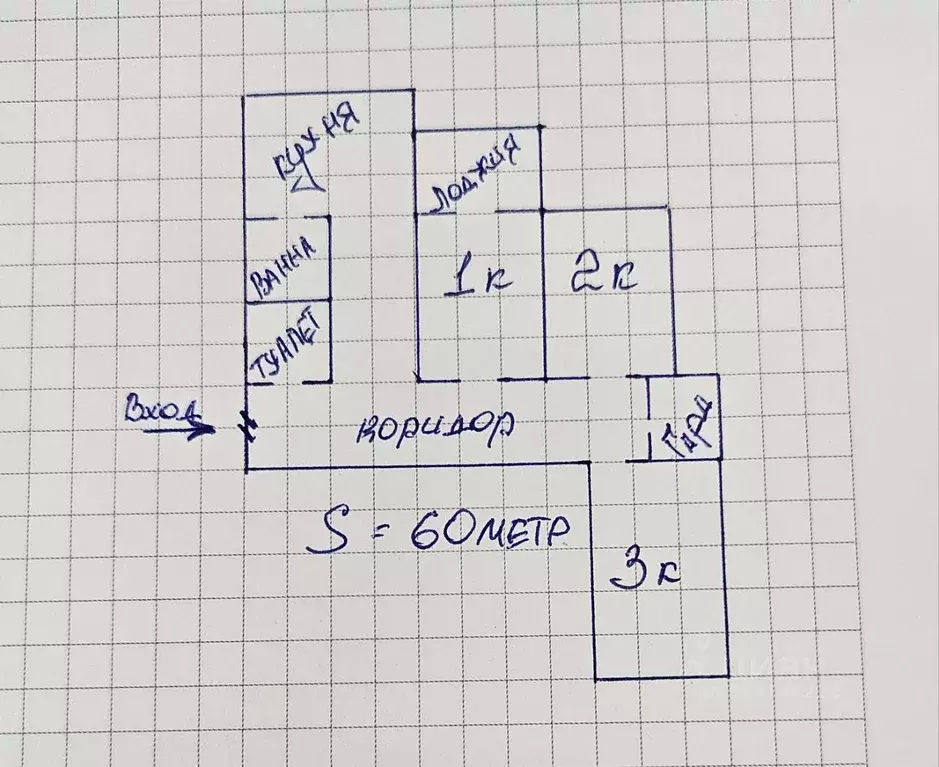 Кухня
Лоджия
Ванна
1к
2к
Туалет
Вход
коридор
Гард
S = 60 метр
3к